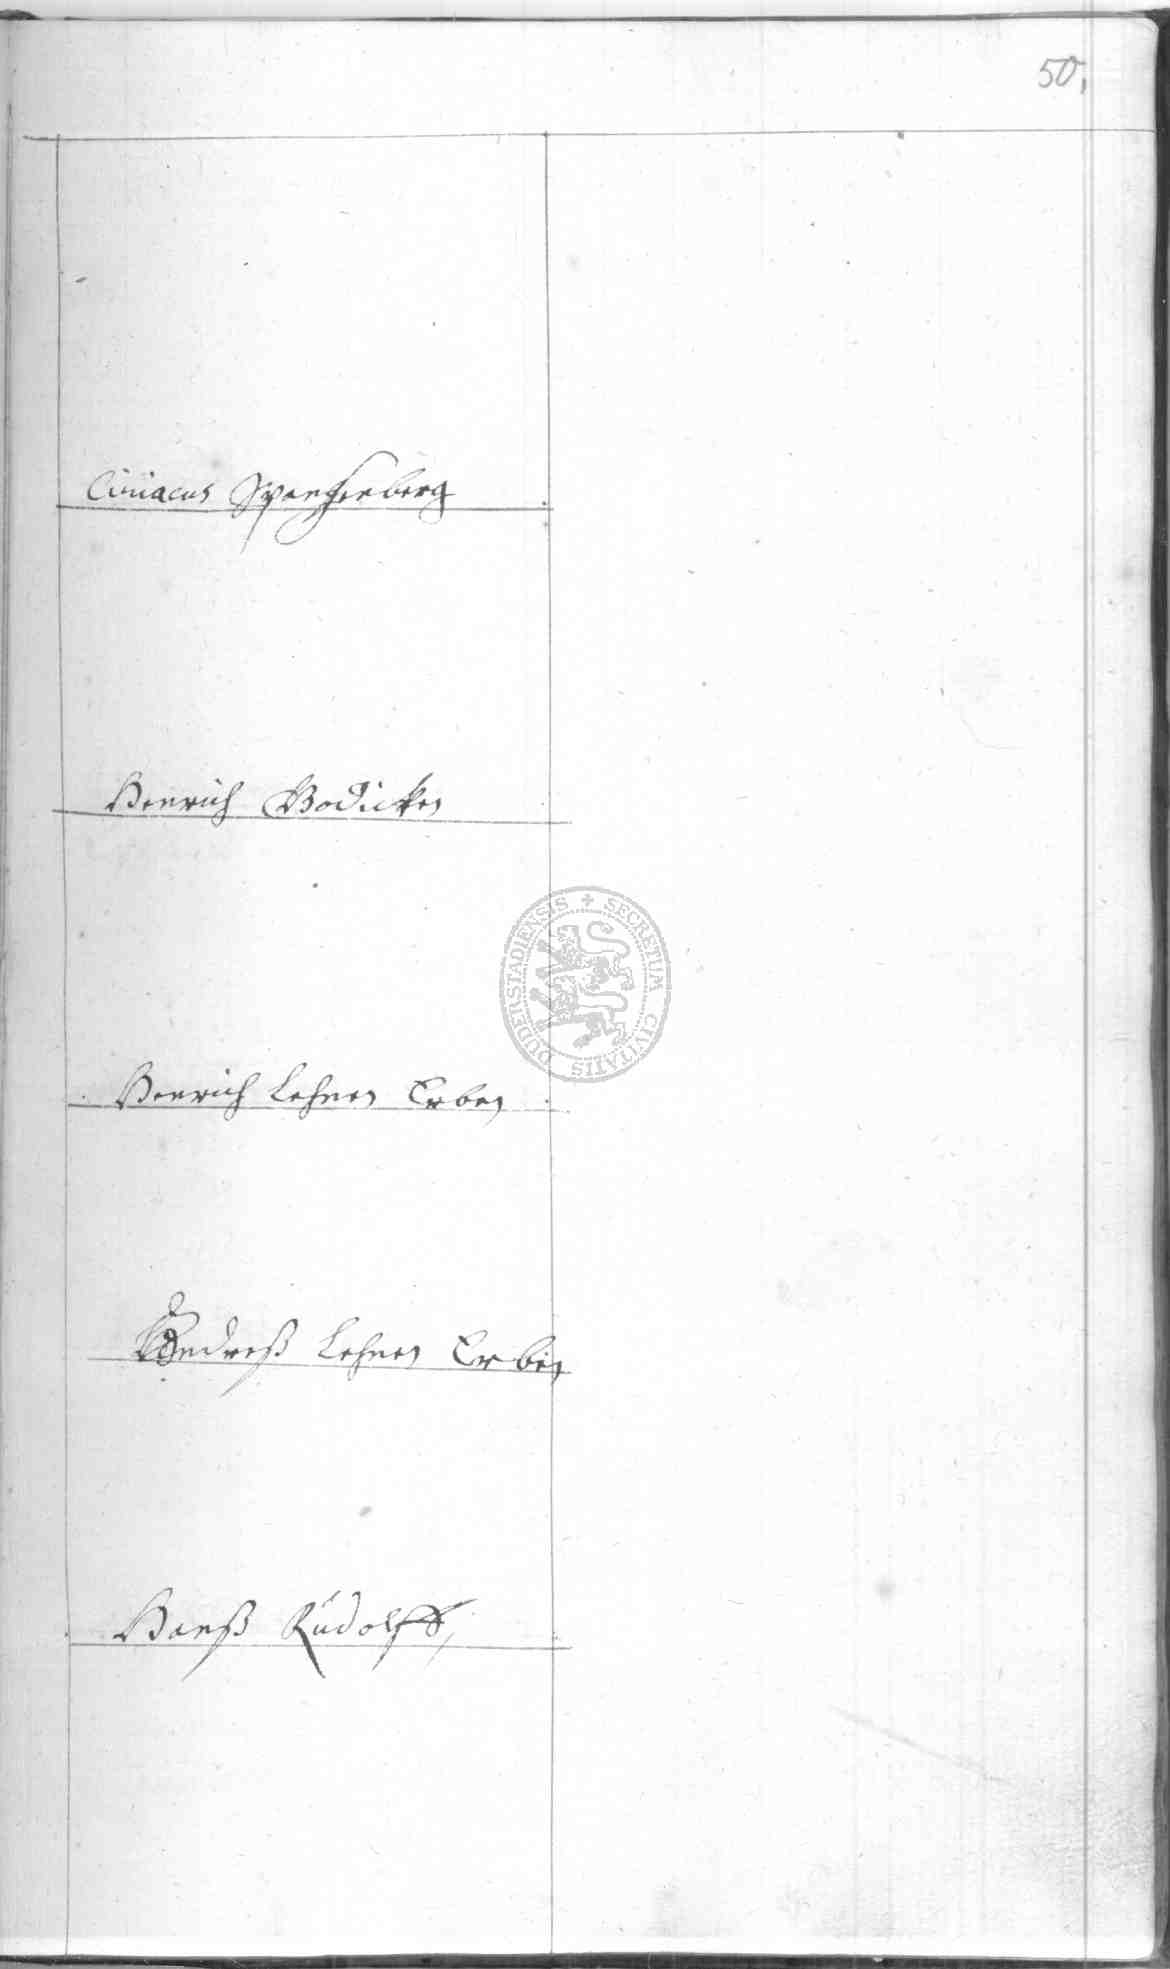 50.
Ciriacus Spangenberg
Henrich Bodicken
Henrich Lehnen Erben
Andreß Lehnen Erben
Hanß Rudolff
SECRETUM CIVITATIS DUDERSTADIENSIS